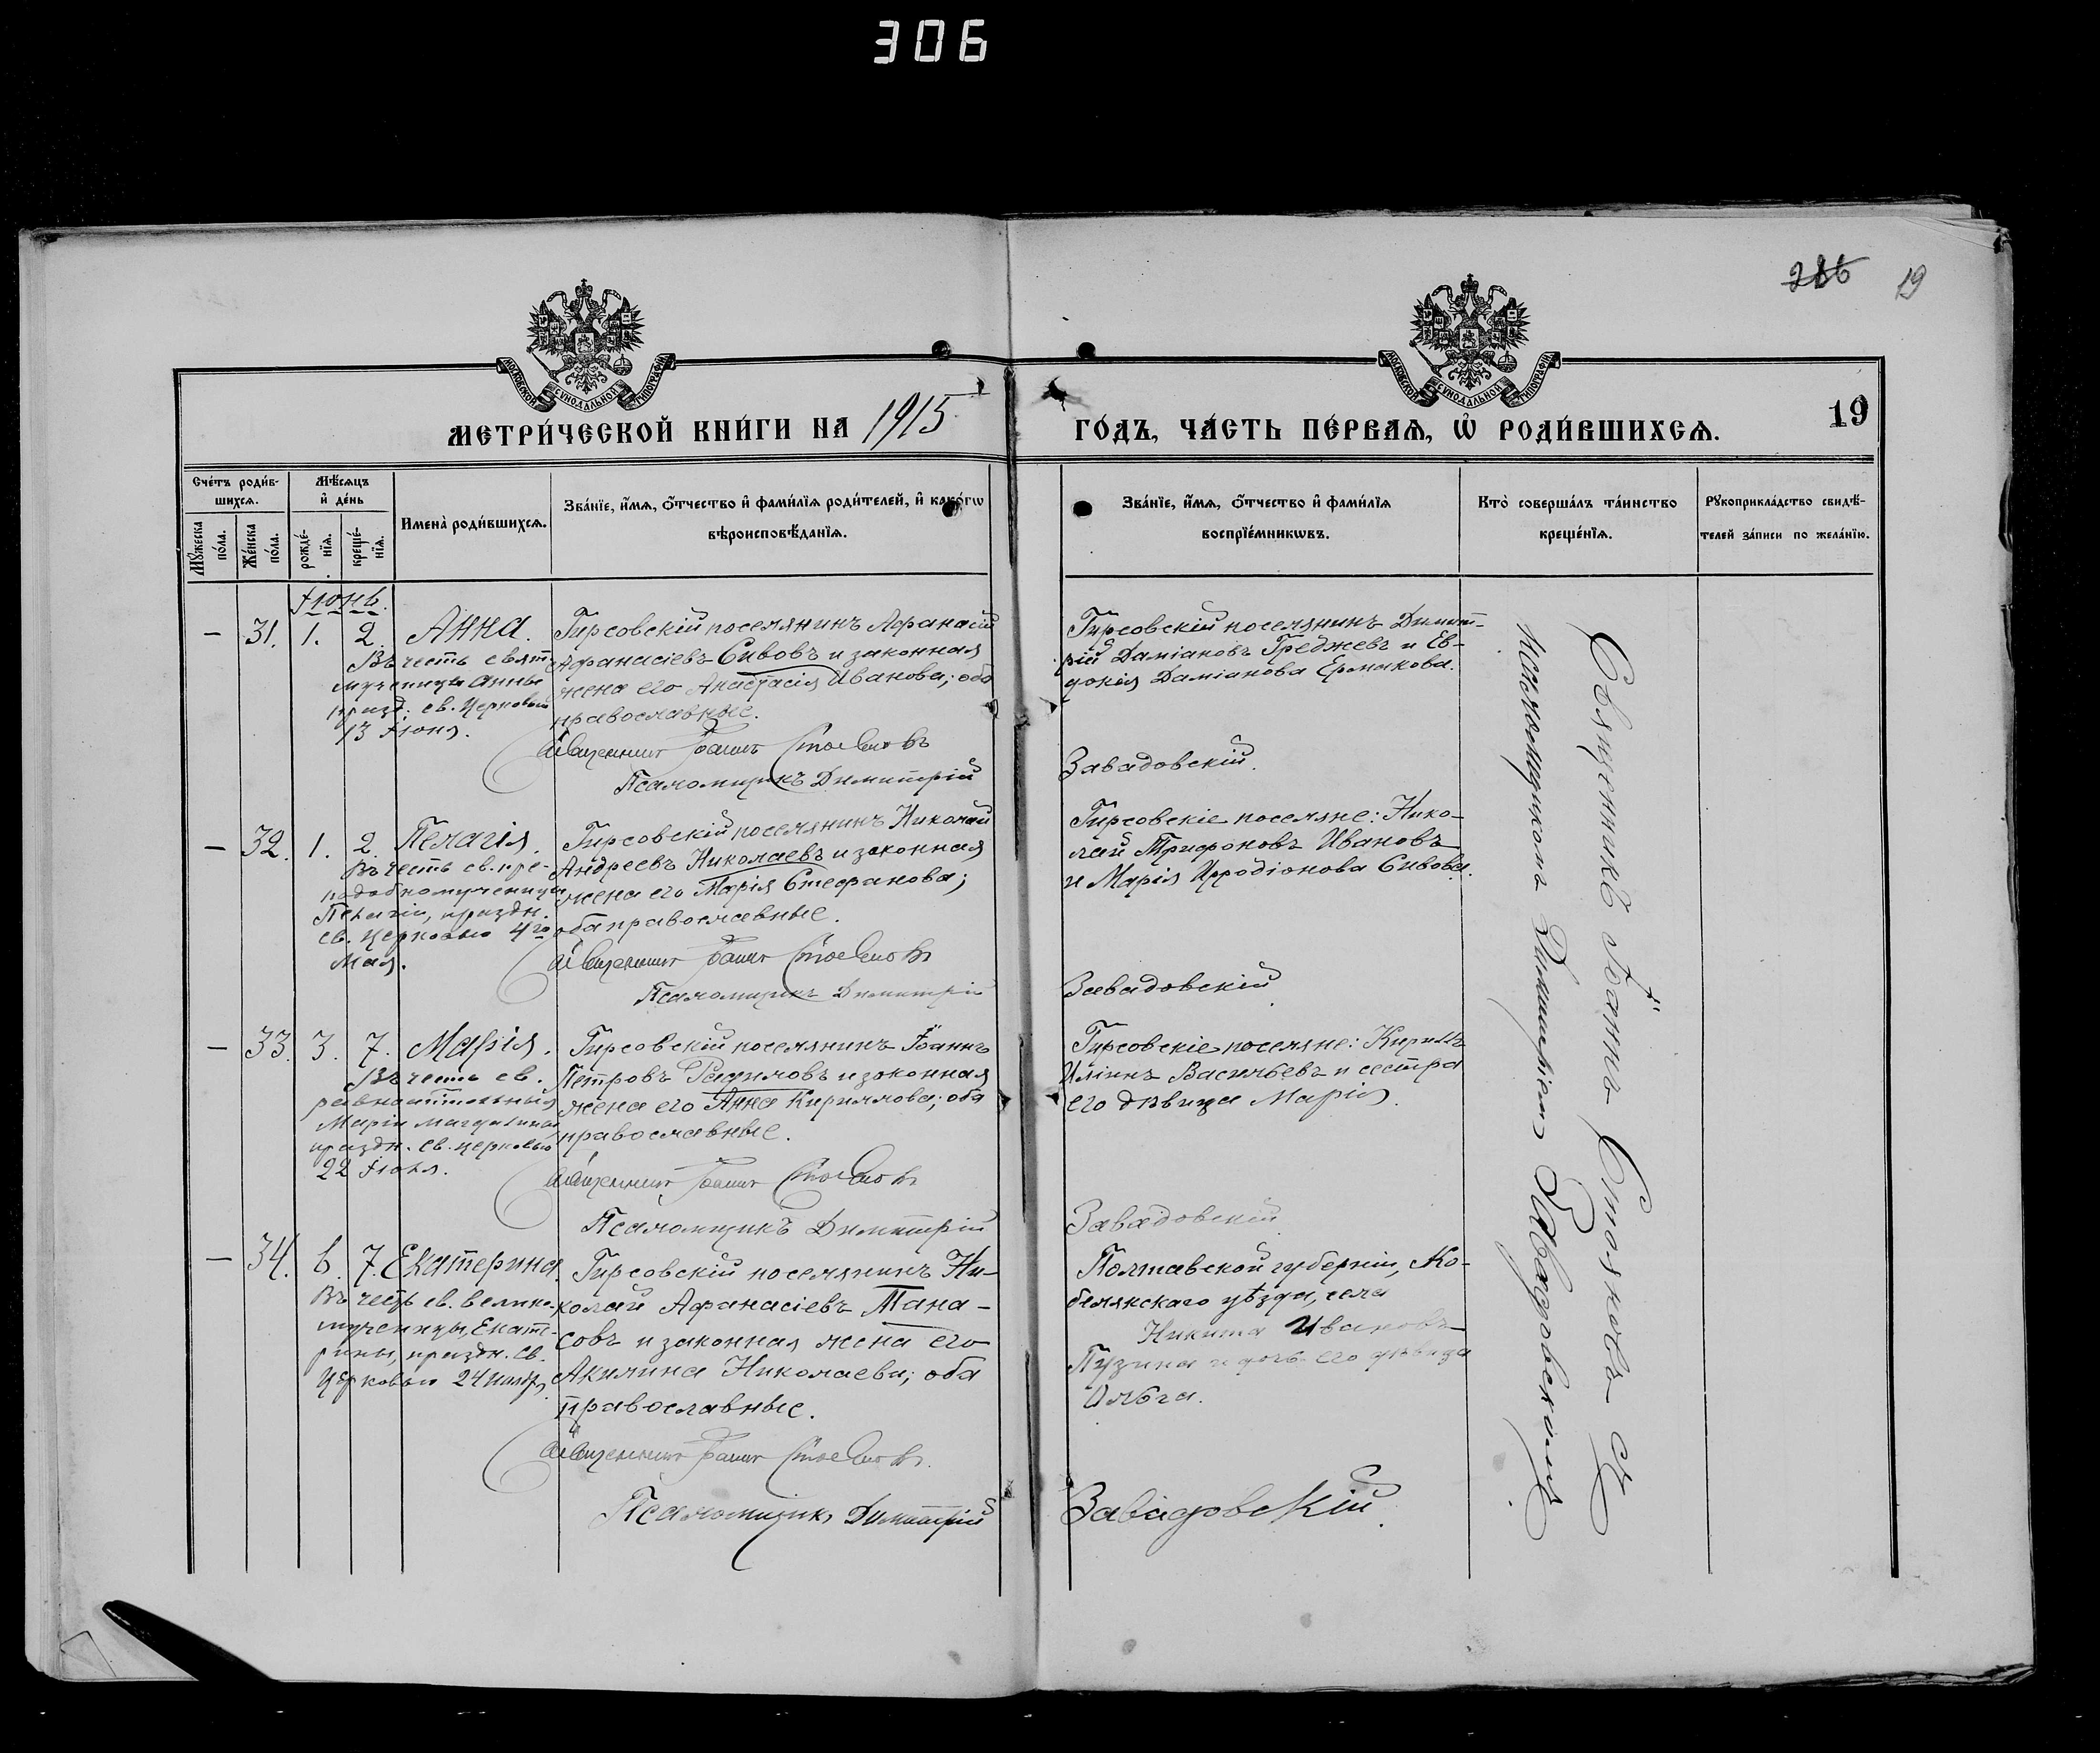 306
286 19
МОСКОВСКОЙ СѴНОДАЛЬНОЙ ТИПОГРАФІИ
МОСКОВСКОЙ СѴНОДАЛЬНОЙ ТИПОГРАФІИ
МЕТРИ́ЧЕСКОЙ КНИ́ГИ НА 1915 ГО́ДЪ, ЧА́СТЬ ПЕ́РВАѦ, Ѡ҆ РОДИ́ВШИХСѦ.
19
Сче́тъ роди́в-
шихсѧ.
Мꙋ́жеска
по́ла.
Же́нска
по́ла.
Мѣ́сѧцъ
и҆ де́нь
рожде́-
нїѧ.
креще́-
нїѧ.
Имена̀ роди́вшихсѧ.
Зва́нїе, и҆́мѧ, ѻ҆́тчество и҆ фами́лїѧ роди́телей, и҆ како́гѡ
вѣроисповѣ́данїѧ.
Зва́нїе, и҆́мѧ, ѻ҆́тчество и҆ фами́лїѧ
воспрїе́мникѡвъ.
Кто̀ соверша́лъ та́инство
креще́нїѧ.
Рꙋкоприкла́дство свидѣ́-
телей за́писи по жела́нїю.
Іюнь.
— 31. 1. 2. Анна.
Въ честь свят.
мученицы Анны
празд. св. Церковью
13 Іюня.
Гирсовскій поселянинъ Афанасій
Афанасіевъ Сивовъ и законная
жена его Анастасія Иванова; оба
православные.
Священникъ Іоаннъ Стоянов
Псаломщикъ Димитрій
Гирсовскій поселянинъ Димит-
рій Даміановъ Греджевъ и Ев-
докія Даміанова Ермакова.
Завадовскій.
— 32. 1. 2. Пелагія.
Въ честь св. пре-
подобномученицы
Пелагіи, праздн.
св. Церковью 4го
Мая.
Гирсовскій поселянинъ Николай
Андреевъ Николаевъ и законная
жена его Марія Стефанова;
оба православные.
Священникъ Іоаннъ Стоянов
Псаломщикъ Димитрій
Гирсовскіе поселяне: Нико-
лай Трифоновъ Ивановъ
и Марія Иродіонова Сивова.
Завадовскій
— 33. 3. 7. Марія.
Въ честь св.
равноапостольныя
Маріи Магдалины
праздн. св. церковью
22 Іюля.
Гирсовскій поселянинъ Іоаннъ
Петровъ Радиловъ и законная
жена его Анна Кириллова; оба
православные.
Священникъ Іоаннъ Стоянов
Псаломщикъ Димитрій
Гирсовскіе поселяне: Кириллъ
Иліинъ Васильевъ и сестра
его дѣвица Марія.
Завадовскій
— 34. 6. 7. Екатерина
Въ честь св. велико-
мученицы Екате-
рины, праздн. св.
Церковью 24 Ноября
Гирсовскій поселянинъ Ни-
колай Афанасіевъ Тана-
совъ и законная жена его
Акилина Николаева; оба
православные.
Священникъ Іоаннъ Стоянов
Псаломщикъ Димитрій
Полтавской губерніи, Ко-
белякскаго уѣзда, села
Никита Ивановъ
Пузина и дочь его дѣвица
Ольга.
Завадовскій.
Священникъ Іоаннъ Стояновъ съ
псаломщикомъ Димитріемъ Завадовскимъ.